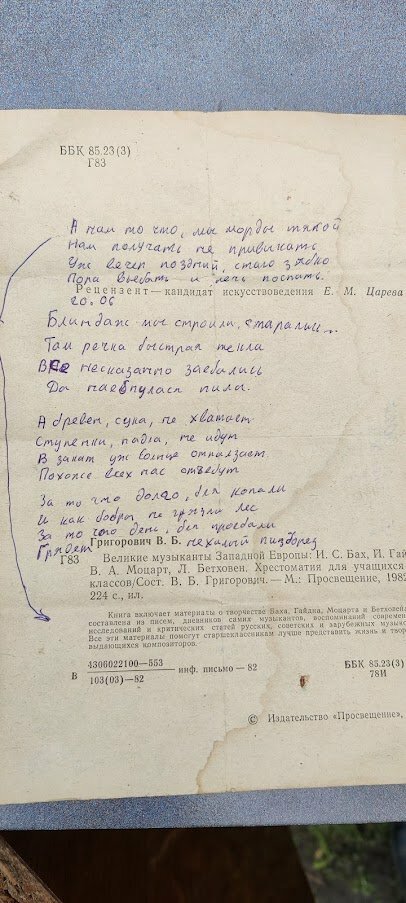 ББК 85.23(3)
Г83
А нам то что, мы морды тяпкой
Нам получать не привыкать
Уж вечер поздний, стало зябко
Пора выебать и лечь поспать.
Рецензент — кандидат искусствоведения Е. М. Царева
20.06
Блиндаж мы строили, старались...
Там речка быстрая текла
Все несказанно заебались
Да наебнулася пила.
А бревен, сука, не хватает
Ступеньки, падла, не идут
В закат уж солнце отползает
Похоже всех нас отъебут
За то что долго, бля копали
И как бобры не грызли лес
За то что день, бля проебали
Грядет нехилый пиздорез
Григорович В. Б.
Г83 Великие музыканты Западной Европы: И. С. Бах, Й. Гай
В. А. Моцарт, Л. Бетховен. Хрестоматия для учащихся
классов/Сост. В. Б. Григорович.— М.: Просвещение, 1982
224 с., ил.
Книга включает материалы о творчестве Баха, Гайдна, Моцарта и Бетховена
составлена из писем, дневников самих музыкантов, воспоминаний современ
исследований и критических статей русских, советских и зарубежных музыко
Все эти материалы помогут старшеклассникам лучше представить жизнь и твор
выдающихся композиторов.
В 4306022100—553 инф. письмо — 82
103(03)—82
ББК 85.23(3)
78И
© Издательство «Просвещение»,